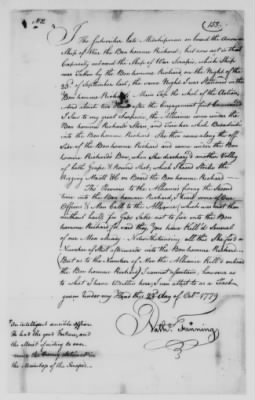 No 2
153
I the Subscriber late Midshipman on board the American
Ship of War the Bon homme Richard, but now act in that
Capacity on board the Ship of War Serapis, which Ship
was taken by the Bonhomme Richard on the Night of the
23d of September last, the same Night I was Stationed in the
Bon homme Richard's Main Top, the whole of the Action,
and about two Hours after the Engagement first Commenced
I Saw to my great Surprise, the Alliance come under the
Bon homme Richards Stern, and Fire her whole Broadside
into the Bon homme Richard. She then came along the off
Side of the Bon homme Richard and came under the Bon
homme Richards Bow, when she discharg'd another Volley
of both Grape & Round Shot, which I heard Strike the
Rigging Mast &c on Board the Bon homme Richard.
The Previous to the Alliance firing the Second
time into the Bon homme Richard, I heard some of our
Officers & Men hail to the Alliance, which was beg them
without hails for Gods Sake not to fire into the Bon
homme Richard, for said they, you have Kill'd Several
of our Men already. Notwithstanding all this She fired a
Number of Shot afterwards into the Bon homme Richard
But as to the Number of Men the Alliance Kill'd on board
the Bon homme Richard, I cannot ascertain, however as
to what I have written here, I can attest to as a Truth
given under my Hand this 23 day of Octr 1779
Nathl Fanning
An intelligent sensible officer
He had the good Fortune, and
the Merit
the Maintop of the Serapis.